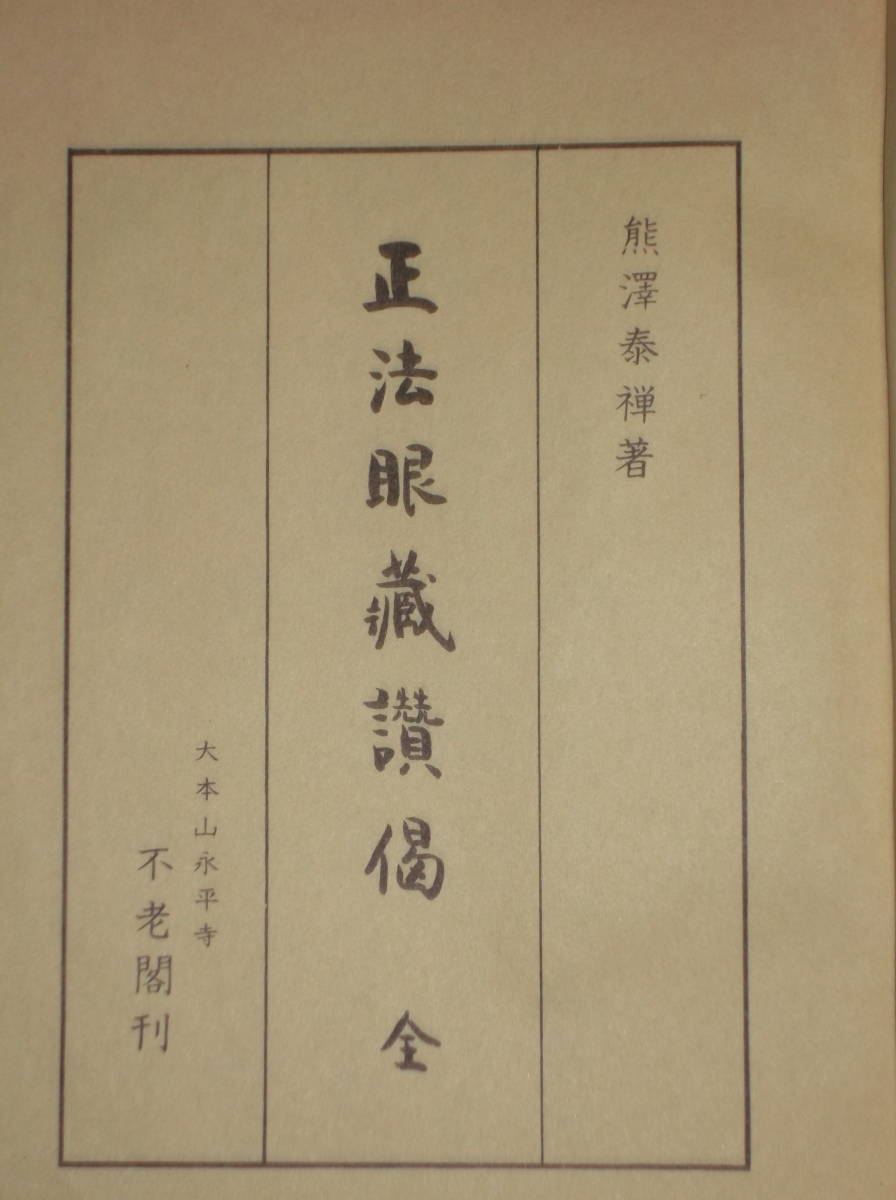 熊澤泰禅著
正法眼藏讃偈 全
大本山永平寺
不老閣刊